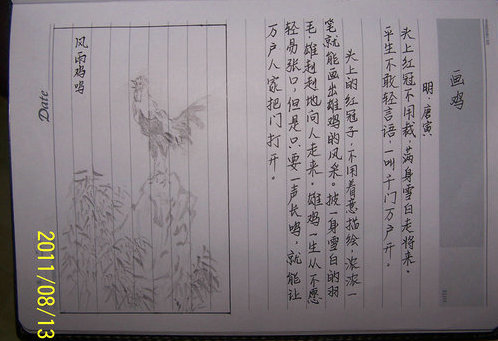 画鸡
明·唐寅
头上红冠不用裁,满身雪白走将来。
平生不敢轻言语,一叫千门万户开。
头上的红冠子,不用着意描绘,浓浓一
笔就能画出雄鸡的风采。披一身雪白的羽
毛,雄赳赳地向人走来。雄鸡一生从不愿
轻易张口,但是只要一声长鸣,就能让
万户人家把门打开。
风雨鸡鸣
Date
2011/08/13